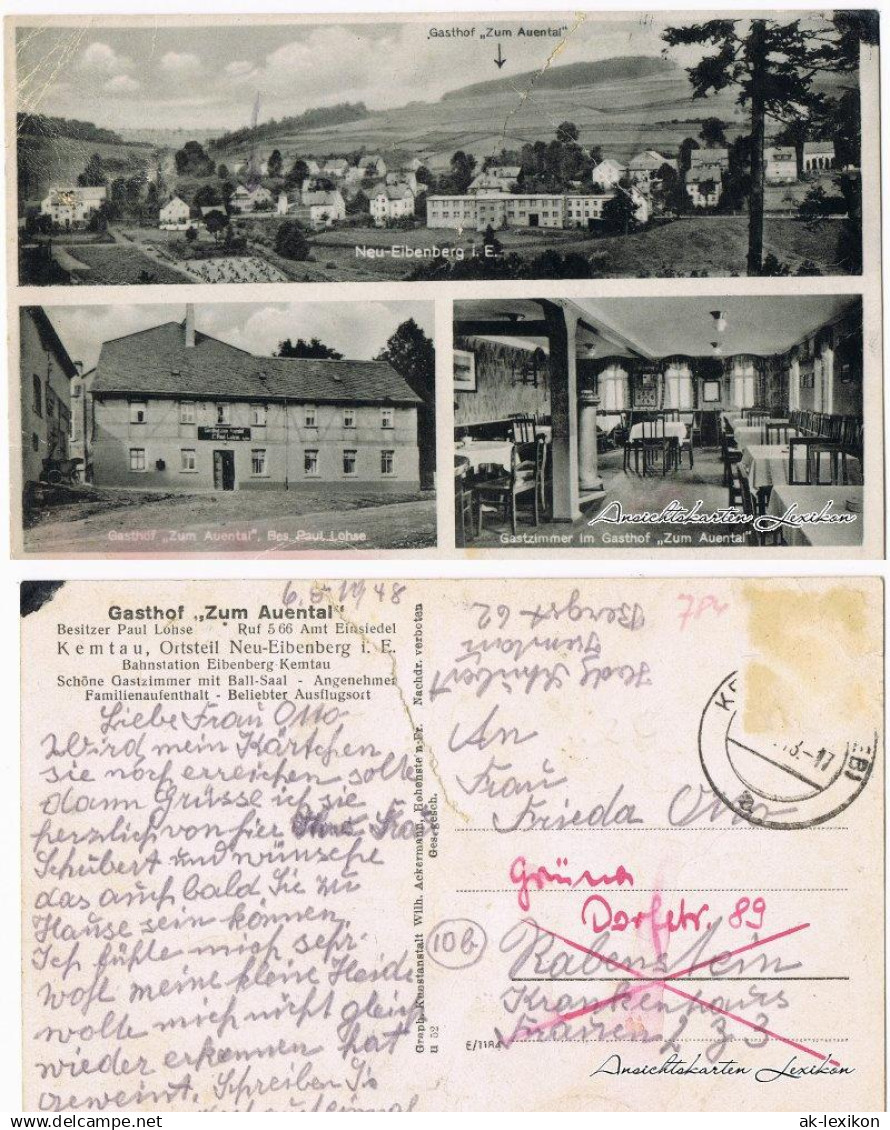 Gasthof „Zum Auental"
Neu-Eibenberg i. E.
Gasthof „Zum Auental", Bes. Paul Lohse
Gastzimmer im Gasthof „Zum Auental"
Ansichtskarten Lexikon
6. 5 1948
Gasthof „Zum Auental"
Besitzer Paul Lohse Ruf 566 Amt Einsiedel
Kemtau, Ortsteil Neu-Eibenberg i. E.
Bahnstation Eibenberg-Kemtau
Schöne Gastzimmer mit Ball-Saal - Angenehmer
Familienaufenthalt - Beliebter Ausflugsort
Liebe Frau Otto
Wird mein Kärtchen
sie noch erreichen sollte
dann Grüsse ich sie
herzlich von hier Frau
Schubert und wünsche
das auch bald Sie zu
Hause sein können
Ich fühle mich sehr
wohl meine kleine Heide
wolte mich nicht gleich
wieder erkennen hat
geweint. Schreiben Sie
Graph. Kunstanstalt Wilh. Ackermann, Hohenstein-Er. Nachdr. verboten
u 52 Ges. gesch.
Schubert
Kemtau
Bergst 62
784
An
Frau
Frieda Otto
Grüna
Dorfstr. 89
10b
Rabenstein
Krankenhaus
Frauen 2, Z 3
E/1184
Ansichtskarten Lexikon
ak-lexikon